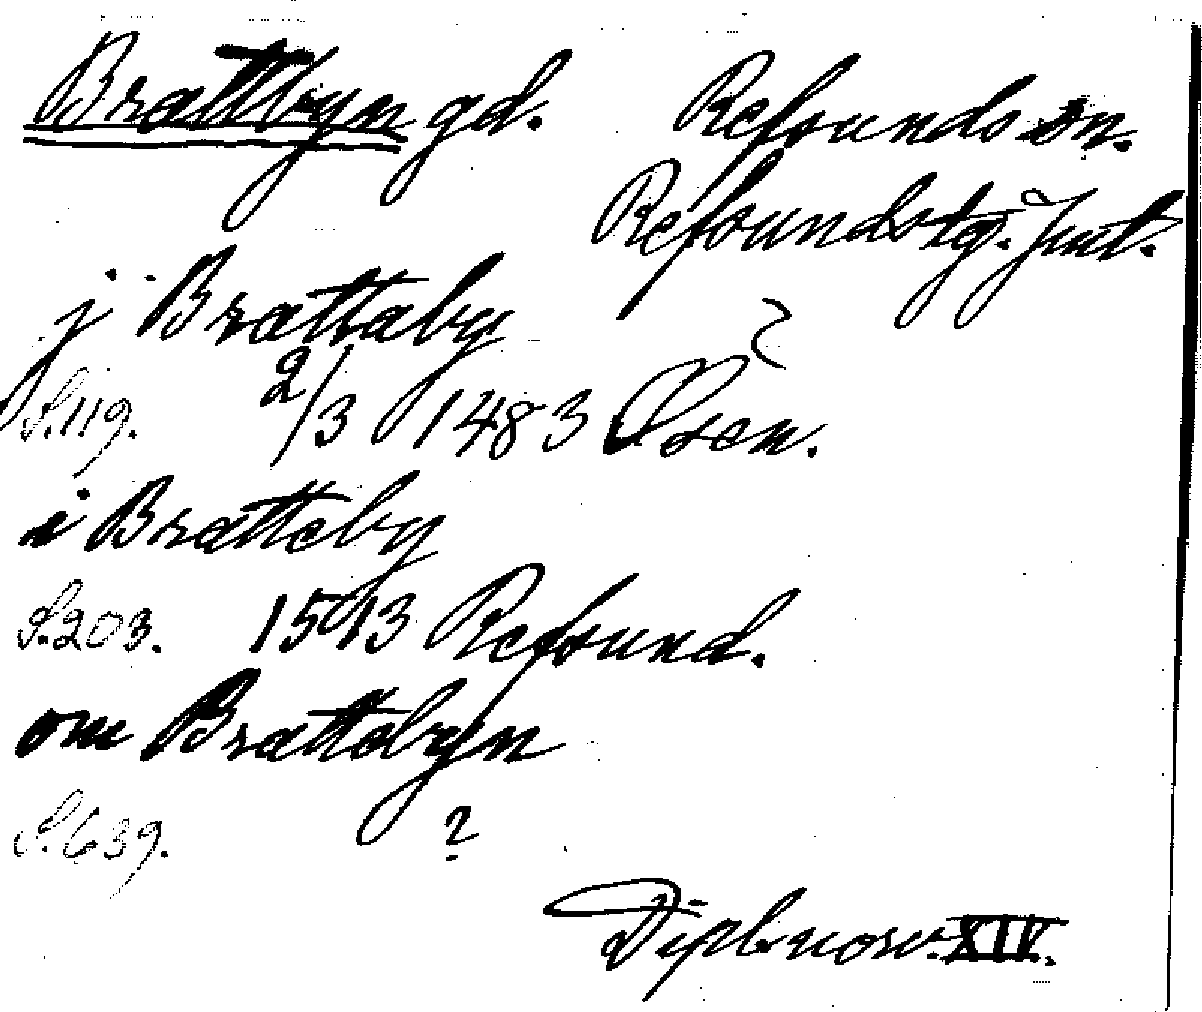 Brattbyn gd. Refsunds sn.
Refsunds tg. Jmt.
j Brattaby
S.119. 2/3 1483 Øsen.
i Bratteby
S.203. 1513 Refsund.
om Brattebyn
S.639. ?
Dipl. norv. XIV.